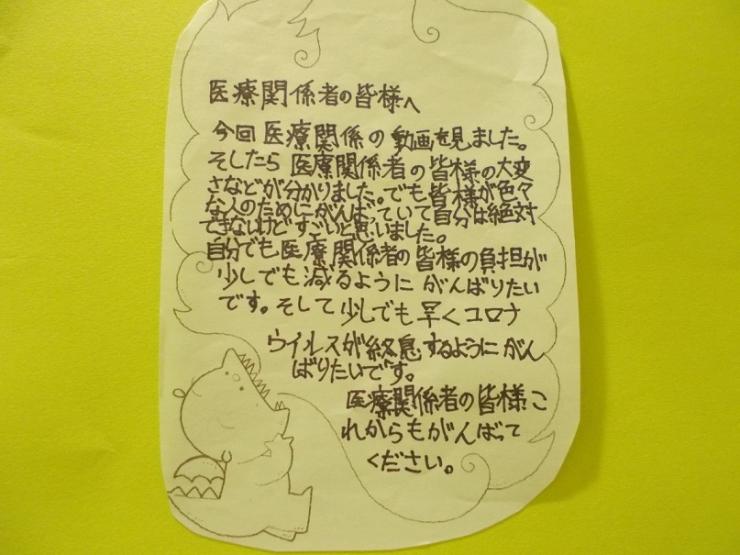 医療関係者の皆様へ
今回医療関係の動画を見ました。
そしたら医療関係者の皆様の大変
さなどが分かりました。でも皆様が色々
な人のためにがんばっていて自分は絶対
できないけどすごいと思いました。
自分でも医療関係者の皆様の負担が
少しでも減るようにがんばりたい
です。そして少しでも早くコロナ
ウイルスが終息するようにがん
ばりたいです。
医療関係者の皆様こ
れからもがんばって
ください。